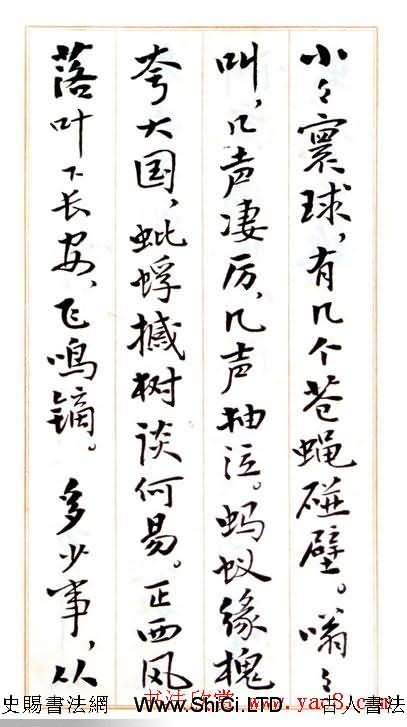 小々寰球，有几个苍蝇碰壁。嗡々
叫，几声凄厉，几声抽泣。蚂蚁缘槐
夸大国，蚍蜉撼树谈何易。正西风
落叶下长安，飞鸣镝。 多少事，从
书法欣赏 www.yac8.com
史賜書法網 www.ShiCi.LTD 古人書法